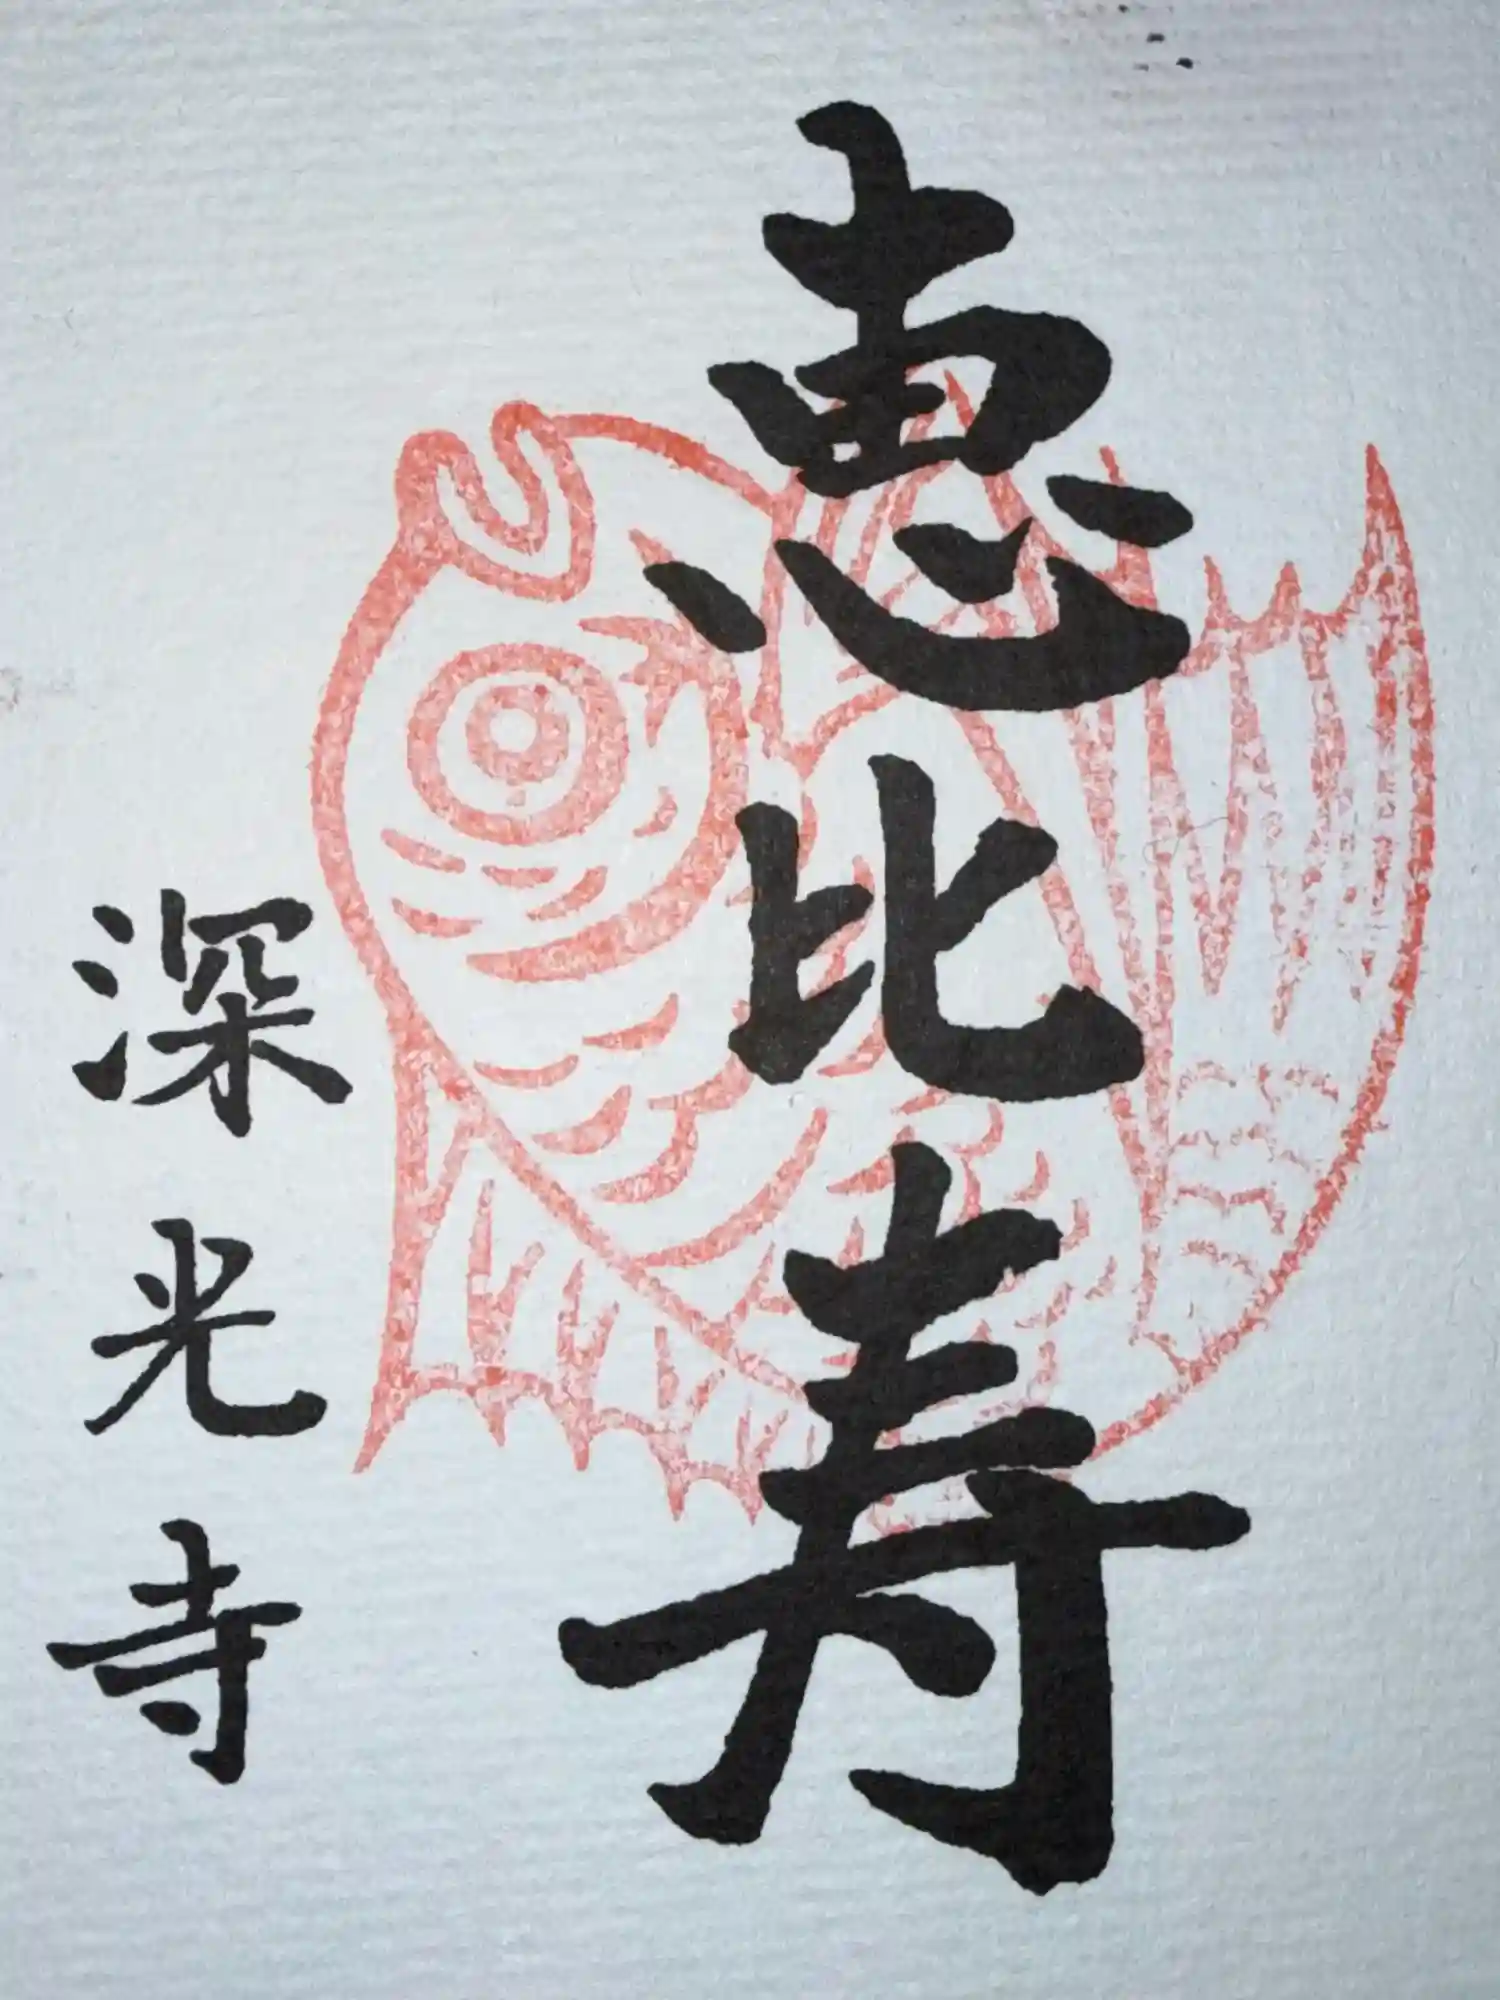 恵比寿
深光寺